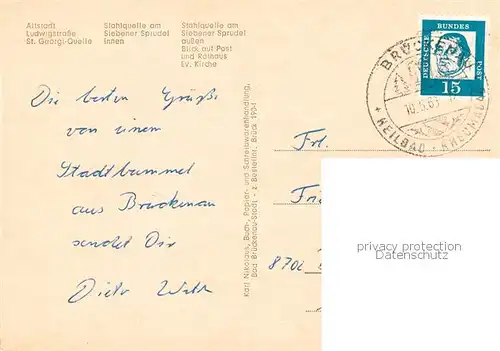 Altstadt
Ludwigstraße
St. Georgi-Quelle
Stahlquelle am
Siebener Sprudel
innen
Stahlquelle am
Siebener Sprudel
außen
Blick auf Post
und Rathaus
Ev. Kirche
Die besten Grüße
von einem
Stadtbummel
aus Brückenau
sendet Dir
Dieter
Karl Nikolaus, Buch-, Papier- und Schreibwarenhandlung,
Bad Brückenau-Stadt - z. Bestellnr. Brück 1904
DEUTSCHE
BUNDES
POST
15
BRÜCKENAU
HEILBAD
Frl.
8702
privacy protection
ansichtskarten